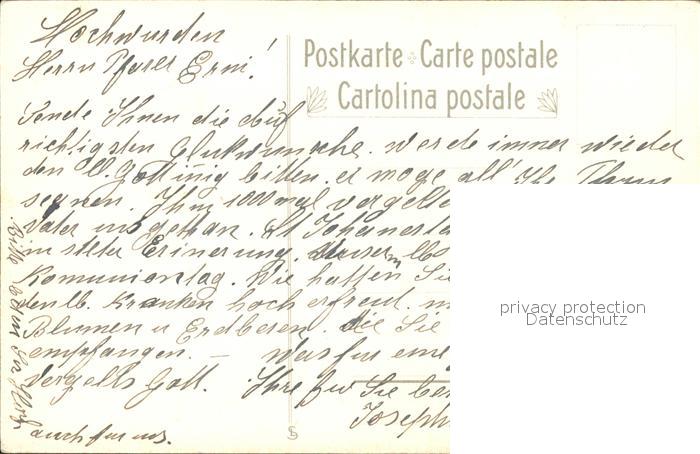 Hochwürden
Herrn Pfarer Erni!
Postkarte Carte postale
Cartolina postale
Sende Ihnen die auf
richtigsten Glukwunsche. werde immer wieder
den lb. Gott innig bitten. er moge all' Ihr
segnen. Ihm 1000 mal vergelte
Vater uns gethan. St Johannes
in steter Erinerung. unser lbs
Komuniontag. Wie hatten Sie
den lb. Kranken hoch erfreut. m
Blumen u Erdberen. die Sie
empfangen. — Was für eine
Vergelts Gott. Ihre fur Sie be
Joseph
auch fur uns.
Bitte beten Sie
privacy protection
Datenschutz